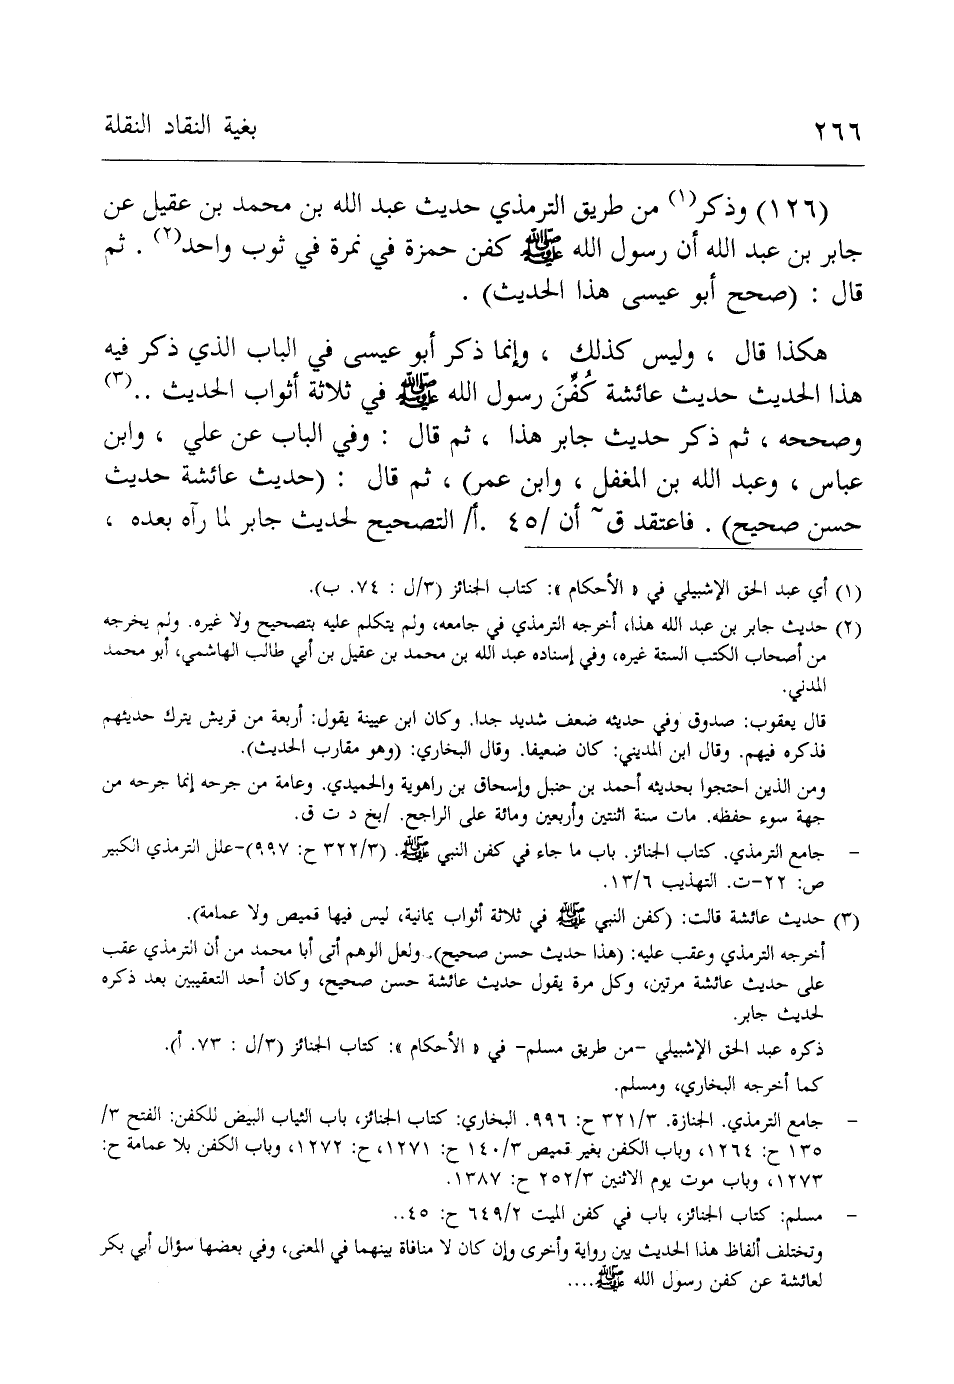 ٢٦٦ بغية النقاد النقلة
(١٢٦) وذكر(١) من طريق الترمذي حديث عبد الله بن محمد بن عقيل عن
جابر بن عبد الله أن رسول الله ﷺ كفن حمزة في نمرة في ثوب واحد(٢) . ثم
قال : (صحح أبو عيسى هذا الحديث) .
هكذا قال ، وليس كذلك ، وإنما ذكر أبو عيسى في الباب الذي ذكر فيه
هذا الحديث حديث عائشة كُفِّنَ رسول الله ﷺ في ثلاثة أثواب الحديث ..(٣)
وصححه ، ثم ذكر حديث جابر هذا ، ثم قال : وفي الباب عن علي ، وابن
عباس ، وعبد الله بن المغفل ، وابن عمر) ، ثم قال : (حديث عائشة حديث
حسن صحيح) . فاعتقد ق~ أن /٤٥ .أ/ التصحيح لحديث جابر لما رآه بعده ،
(١) أي عبد الحق الإشبيلي في « الأحكام »: كتاب الجنائز (٣/ل : ٧٤. ب).
(٢) حديث جابر بن عبد الله هذا، أخرجه الترمذي في جامعه، ولم يتكلم عليه بتصحيح ولا غيره. ولم يخرجه
من أصحاب الكتب الستة غيره، وفي إسناده عبد الله بن محمد بن عقيل بن أبي طالب الهاشمي، أبو محمد
المدني.
قال يعقوب: صدوق وفي حديثه ضعف شديد جدا. وكان ابن عيينة يقول: أربعة من قريش يترك حديثهم
فذكره فيهم. وقال ابن المديني: كان ضعيفا. وقال البخاري: (وهو مقارب الحديث).
ومن الذين احتجوا بحديثه أحمد بن حنبل وإسحاق بن راهوية والحميدي. وعامة من جرحه إنما جرحه من
جهة سوء حفظه. مات سنة اثنتين وأربعين ومائة على الراجح. /بخ د ت ق.
- جامع الترمذي. كتاب الجنائز. باب ما جاء في كفن النبي ﷺ. (٣٢٢/٣ ح: ٩٩٧)-علل الترمذي الكبير
ص: ٢٢-ت. التهذيب ١٣/٦.
(٣) حديث عائشة قالت: (كفن النبي ﷺ في ثلاثة أثواب يمانية، ليس فيها قميص ولا عمامة).
أخرجه الترمذي وعقب عليه: (هذا حديث حسن صحيح). ولعل الوهم أتى أبا محمد من أن الترمذي عقب
على حديث عائشة مرتين، وكل مرة يقول حديث عائشة حسن صحيح، وكان أحد التعقيبين بعد ذكره
لحديث جابر.
ذكره عبد الحق الإشبيلي -من طريق مسلم- في « الأحكام »: كتاب الجنائز (٣/ل : ٧٣. أ).
كما أخرجه البخاري، ومسلم.
- جامع الترمذي. الجنازة. ٣٢١/٣ ح: ٩٩٦. البخاري: كتاب الجنائز، باب الثياب البيض للكفن: الفتح ٣/
١٣٥ ح: ١٢٦٤، وباب الكفن بغير قميص ١٤٠/٣ ح: ١٢٧١، ح: ١٢٧٢، وباب الكفن بلا عمامة ح:
١٢٧٣، وباب موت يوم الاثنين ٢٥٢/٣ ح: ١٣٨٧.
- مسلم: كتاب الجنائز، باب في كفن الميت ٦٤٩/٢ ح: ٤٥..
وتختلف ألفاظ هذا الحديث بين رواية وأخرى وإن كان لا منافاة بينهما في المعنى، وفي بعضها سؤال أبي بكر
لعائشة عن كفن رسول الله ﷺ....